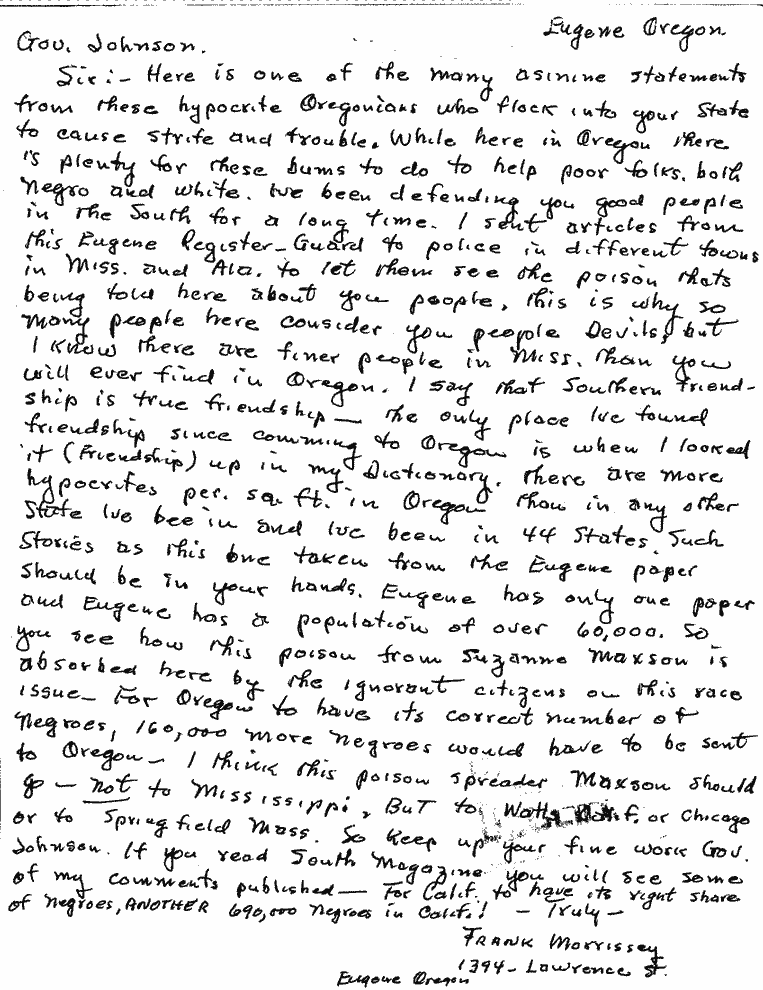 Eugene Oregon.
Gov. Johnson.
Sir:- Here is one of the many asinine statements
from these hypocrite Oregonians who flock into your State
to cause strife and trouble. While here in Oregon there
is plenty for these bums to do to help poor folks. both
Negro and white. Ive been defending you good people
in the South for a long time. I sent articles from
this Eugene Register-Guard to police in different towns
in Miss. and Ala. to let them see the poison thats
being told here about you people, this is why so
many people here consider you people Devils, but
I know there are finer people in Miss. than you
will ever find in Oregon. I say that Southern friend-
ship is true friendship— the only place Ive found
friendship since comming to Oregon is when I looked
it (Friendship) up in my Dictionary. there are more
hypocrites per. sq. ft. in Oregon than in any other
State Ive bee in and Ive been in 44 States. Such
Stories as this one taken from the Eugene paper
should be in your hands. Eugene has only one paper
and Eugene has a population of over 60,000. So
you see how this poison from Suzanne Maxson is
absorbed here by the ignorant citizens on this race
issue— For Oregon to have its correct number of
Negroes, 160,000 more Negroes would have to be sent
to Oregon— I think this poison spreader Maxson should
go — not to Mississippi, BuT to Watts Calif. or Chicago
or to Springfield Mass. So keep up your fine work Gov.
Johnson. If you read South Magazine you will see some
of my comments published— For Calif. to have its right share
of Negroes, ANOTHER 690,000 Negroes in Calif.! — Truly—
FRANK Morrissey
1394- Lawrence St.
Eugene Oregon